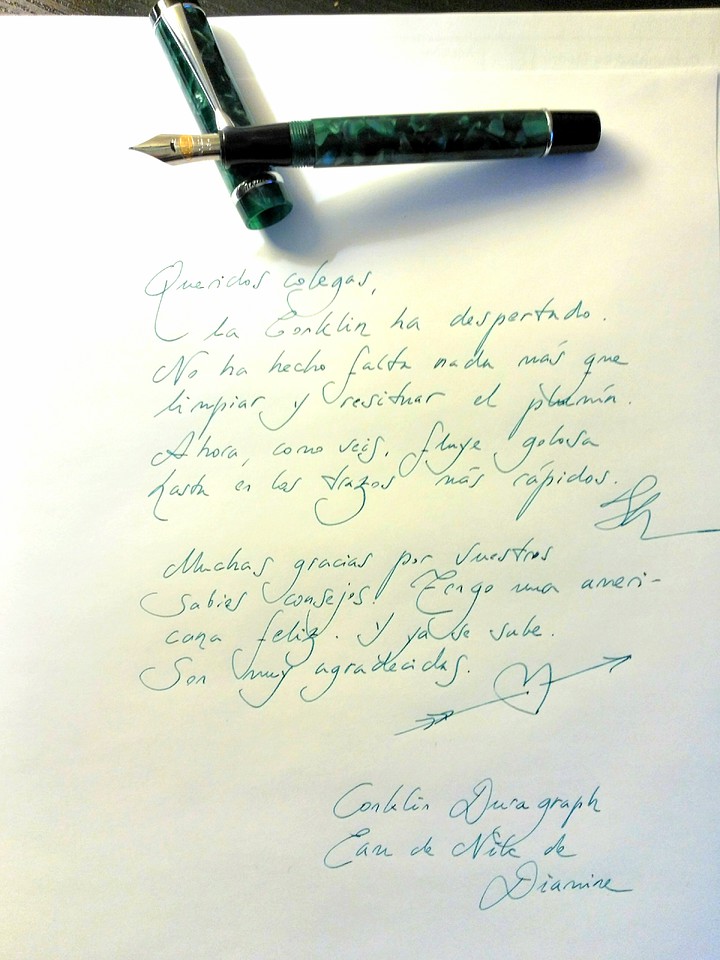 Queridos colegas,
la Conklin ha despertado.
No ha hecho falta nada más que
limpiar y resituar el plumín.
Ahora, como veis, fluye golosa
hasta en los trazos más rápidos.
Muchas gracias por vuestros
sabios consejos. Tengo una ameri-
cana feliz. Y ya se sabe.
Son muy agradecidas.
Conklin Duragraph
Eau de Nile de
Diamine